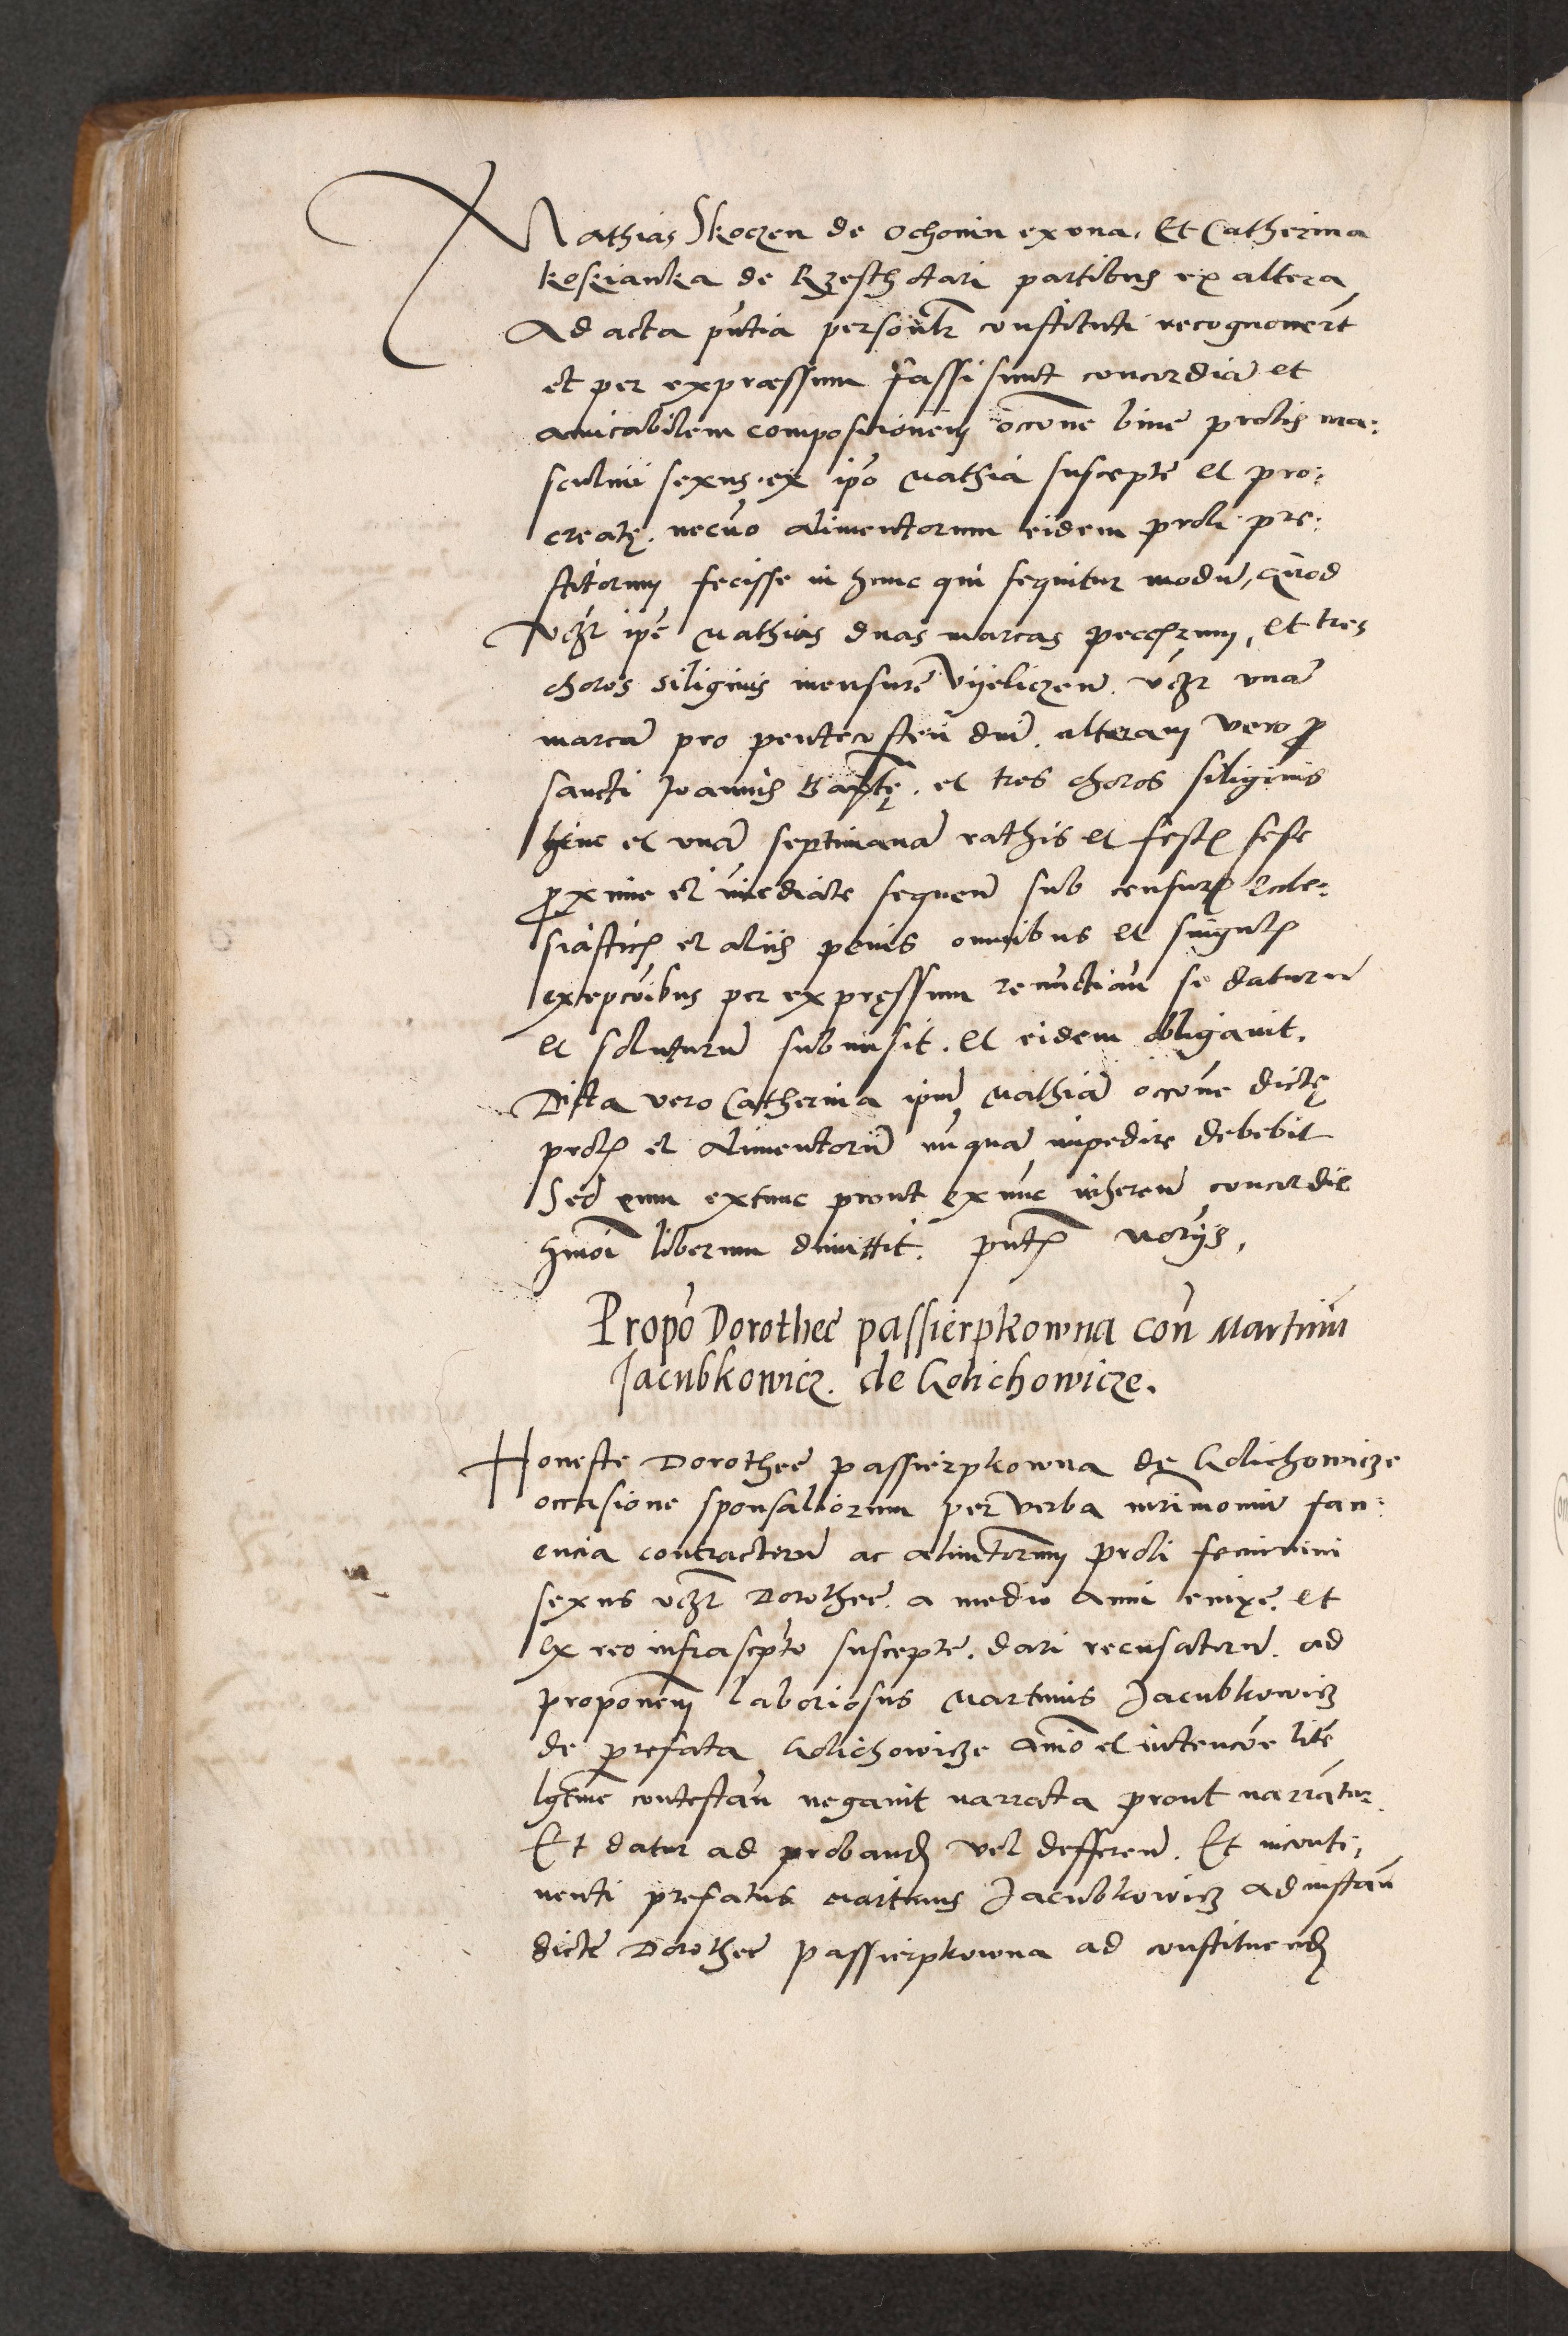 Mathias Skoczen de Ochonin ex una. Et Catherina
Koszianka de Rzeschotari partibus ex altera
Ad acta pn̄tia personlr̄ constituti recognouer̄t
et per expraessum fassi sunt concordiā et
amicabilem compositionem occōne bine prolis ma:
sculini sexus. ex ip̄o Mathia suscepte et pro:
creatę. necnō alimentorum eidem proli pre:
stitorum fecisse in hunc qui sequitur modū, quod
ip̄e Mathias duas marcas et tres
choros siliginis mensure Vyeliczen̄. vnā
marcā pro pentecosten̄ alteram vero ꝓ
sancti Joannis Bapt̄ę. et tres choros siliginis
hinc et vnā septimanā rathis et sese
ꝓxime et īmediate sequen̄ sub censurꝭ Eccle:
siasticꝭ et aliis penis omnibus et singulꝭ
excepcōibus per expręssum renūctian̄ se daturū
et soluturū submisit. et eidem obligauit.
Dicta vero Catherina ipm̄ Mathiā occōne dictę
prolꝭ et alimentorū nūquā impedire debebit
Sed eum extunc prout exnūc inheren̄ concordie
hmōi liberum dimittit. pn̄tꝭ
Propō Dorothee passierpkowna con̄ Martinū
Jacubkowicz. de Golichowicze.
Honeste Dorothee passierpkowna de Golichowicze
occasione sponsaliorum per verba mr̄imonium san:
encia contractorū ac alimentorum proli feminini
sexus Dorothee. a medio anni enixe. et
ex reo infrascpto suscepte. dari recusatorū. ad
proponem̄ laboriosus Martinus Jacubkowicz
de prefata Golichowicze animō et intencōe litē
contestan̄ negauit narrata prout narrātur.
Et datur ad proband vel defferen̄. Et inconti:
nenti prefatus Martinus Jacubkowicz ad instan̄
dicte Dorothee passierpkowna ad constituend